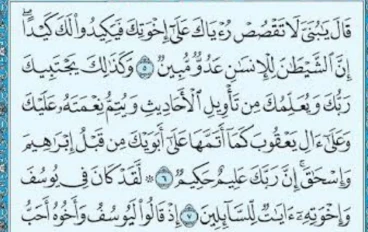 قَالَ يَٰبُنَىَّ لَا تَقْصُصْ رُءْيَاكَ عَلَىٰٓ إِخْوَتِكَ فَيَكِيدُوا۟ لَكَ كَيْدًا ۖ
إِنَّ ٱلشَّيْطَٰنَ لِلْإِنسَٰنِ عَدُوٌّ مُّبِينٌ ٥ وَكَذَٰلِكَ يَجْتَبِيكَ
رَبُّكَ وَيُعَلِّمُكَ مِن تَأْوِيلِ ٱلْأَحَادِيثِ وَيُتِمُّ نِعْمَتَهُۥ عَلَيْكَ
وَعَلَىٰٓ ءَالِ يَعْقُوبَ كَمَآ أَتَمَّهَا عَلَىٰٓ أَبَوَيْكَ مِن قَبْلُ إِبْرَٰهِيمَ
وَإِسْحَٰقَ ۚ إِنَّ رَبَّكَ عَلِيمٌ حَكِيمٌ ٦ ۞ لَّقَدْ كَانَ فِى يُوسُفَ
وَإِخْوَتِهِۦٓ ءَايَٰتٌ لِّلسَّآئِلِينَ ٧ إِذْ قَالُوا۟ لَيُوسُفُ وَأَخُوهُ أَحَبُّ